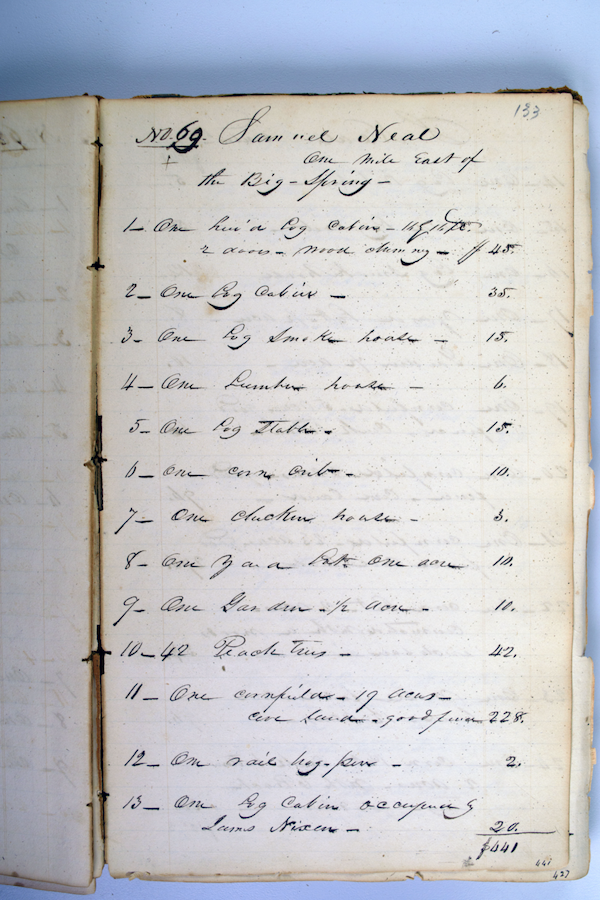 133
No. 69. Samuel Neal
One Mile East of
the Big-Spring-
1- One hew'd Log Cabin - 16 by 16 &c.
2 doors - wood chimney - $ 45.
2- One Log Cabin - 35.
3- One Log Smoke house - 15.
4- One Lumber house - 6.
5- One Log Stable - 15.
6- One corn crib - 10.
7- One chicken house - 3.
8- One Yard Lot. One acre 10.
9- One Garden - 1/2 Acre - 10.
10- 42 Peach Trees - 42.
11- One cornfield - 19 acres -
Land - good fence 228.
12- One rail hog-pen - 2.
13- One Log Cabin occupied by
James Nixen - 20.
$441
441
427